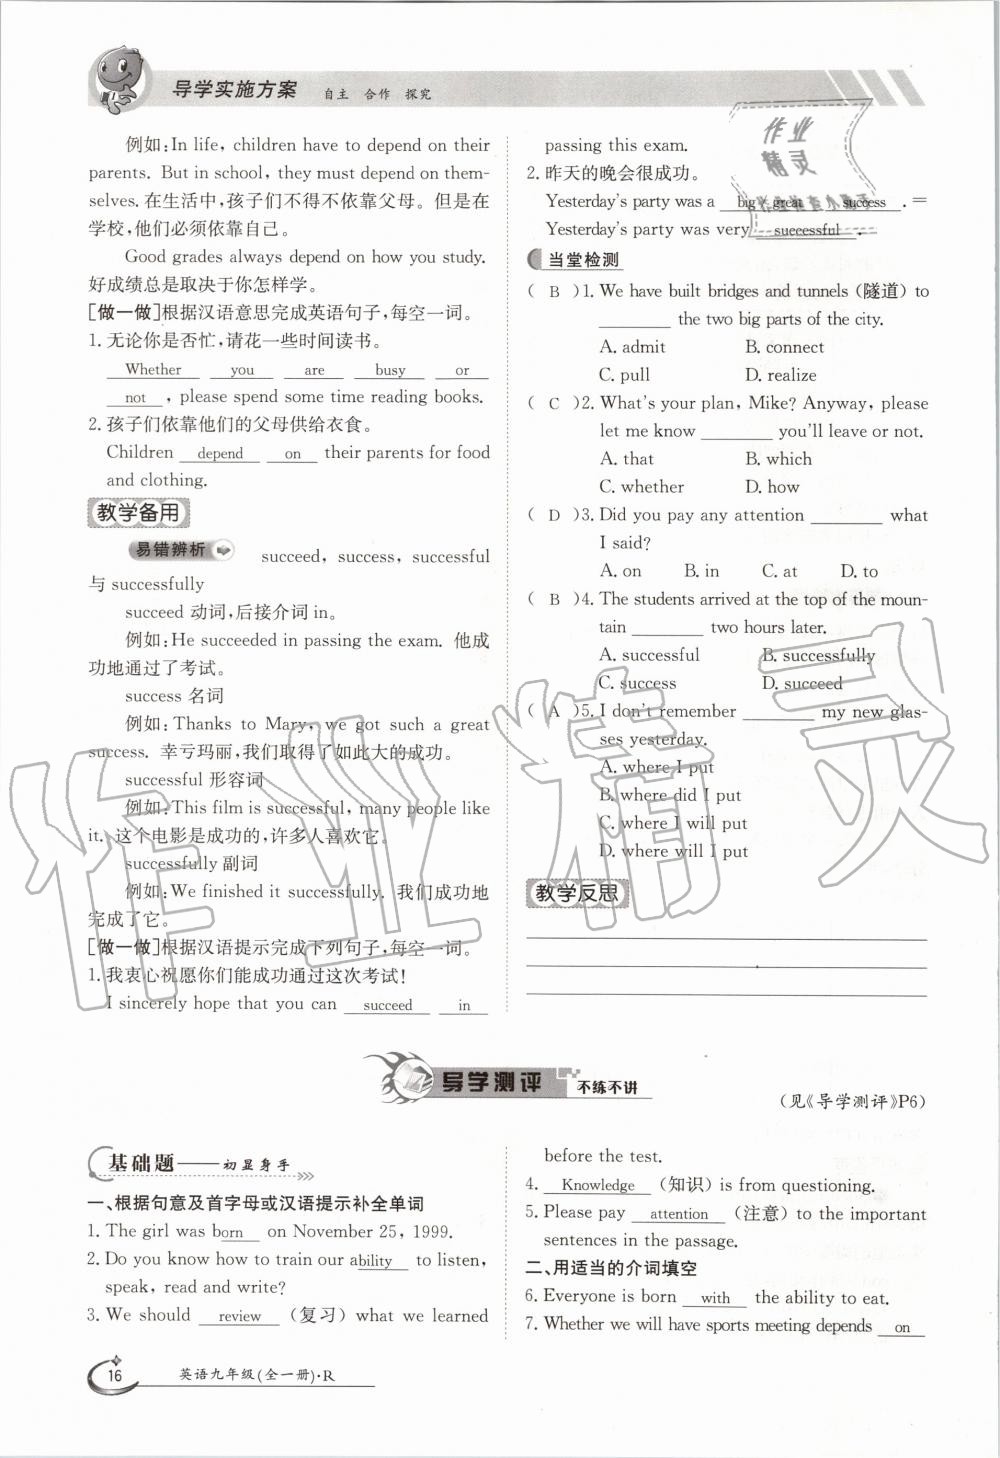 导学实施方案 自主 合作 探究
例如:In life, children have to depend on their
parents. But in school, they must depend on them-
selves. 在生活中,孩子们不得不依靠父母。但是在
学校,他们必须依靠自己。
Good grades always depend on how you study.
好成绩总是取决于你怎样学。
[做一做]根据汉语意思完成英语句子,每空一词。
1. 无论你是否忙,请花一些时间读书。
Whether you are busy or
not , please spend some time reading books.
2. 孩子们依靠他们的父母供给衣食。
Children depend on their parents for food
and clothing.
教学备用
易错辨析 succeed, success, successful
与 successfully
succeed 动词,后接介词 in。
例如:He succeeded in passing the exam. 他成
功地通过了考试。
success 名词
例如:Thanks to Mary, we got such a great
success. 幸亏玛丽,我们取得了如此大的成功。
successful 形容词
例如:This film is successful, many people like
it. 这个电影是成功的,许多人喜欢它。
successfully 副词
例如:We finished it successfully. 我们成功地
完成了它。
[做一做]根据汉语提示完成下列句子,每空一词。
1. 我衷心祝愿你们能成功通过这次考试!
I sincerely hope that you can succeed in
passing this exam.
2. 昨天的晚会很成功。
Yesterday's party was a big/great success . =
Yesterday's party was very successful .
当堂检测
( B )1. We have built bridges and tunnels (隧道) to
________ the two big parts of the city.
A. admit B. connect
C. pull D. realize
( C )2. What's your plan, Mike? Anyway, please
let me know ________ you'll leave or not.
A. that B. which
C. whether D. how
( D )3. Did you pay any attention ________ what
I said?
A. on B. in C. at D. to
( B )4. The students arrived at the top of the moun-
tain ________ two hours later.
A. successful B. successfully
C. success D. succeed
( A )5. I don't remember ________ my new glas-
ses yesterday.
A. where I put
B. where did I put
C. where I will put
D. where will I put
教学反思
导学测评 不练不讲
(见《导学测评》P6)
基础题——初显身手
一、根据句意及首字母或汉语提示补全单词
1. The girl was born on November 25, 1999.
2. Do you know how to train our ability to listen,
speak, read and write?
3. We should review (复习) what we learned
before the test.
4. Knowledge (知识) is from questioning.
5. Please pay attention (注意) to the important
sentences in the passage.
二、用适当的介词填空
6. Everyone is born with the ability to eat.
7. Whether we will have sports meeting depends on
16 英语九年级(全一册)·R
作业精灵
作业
精灵